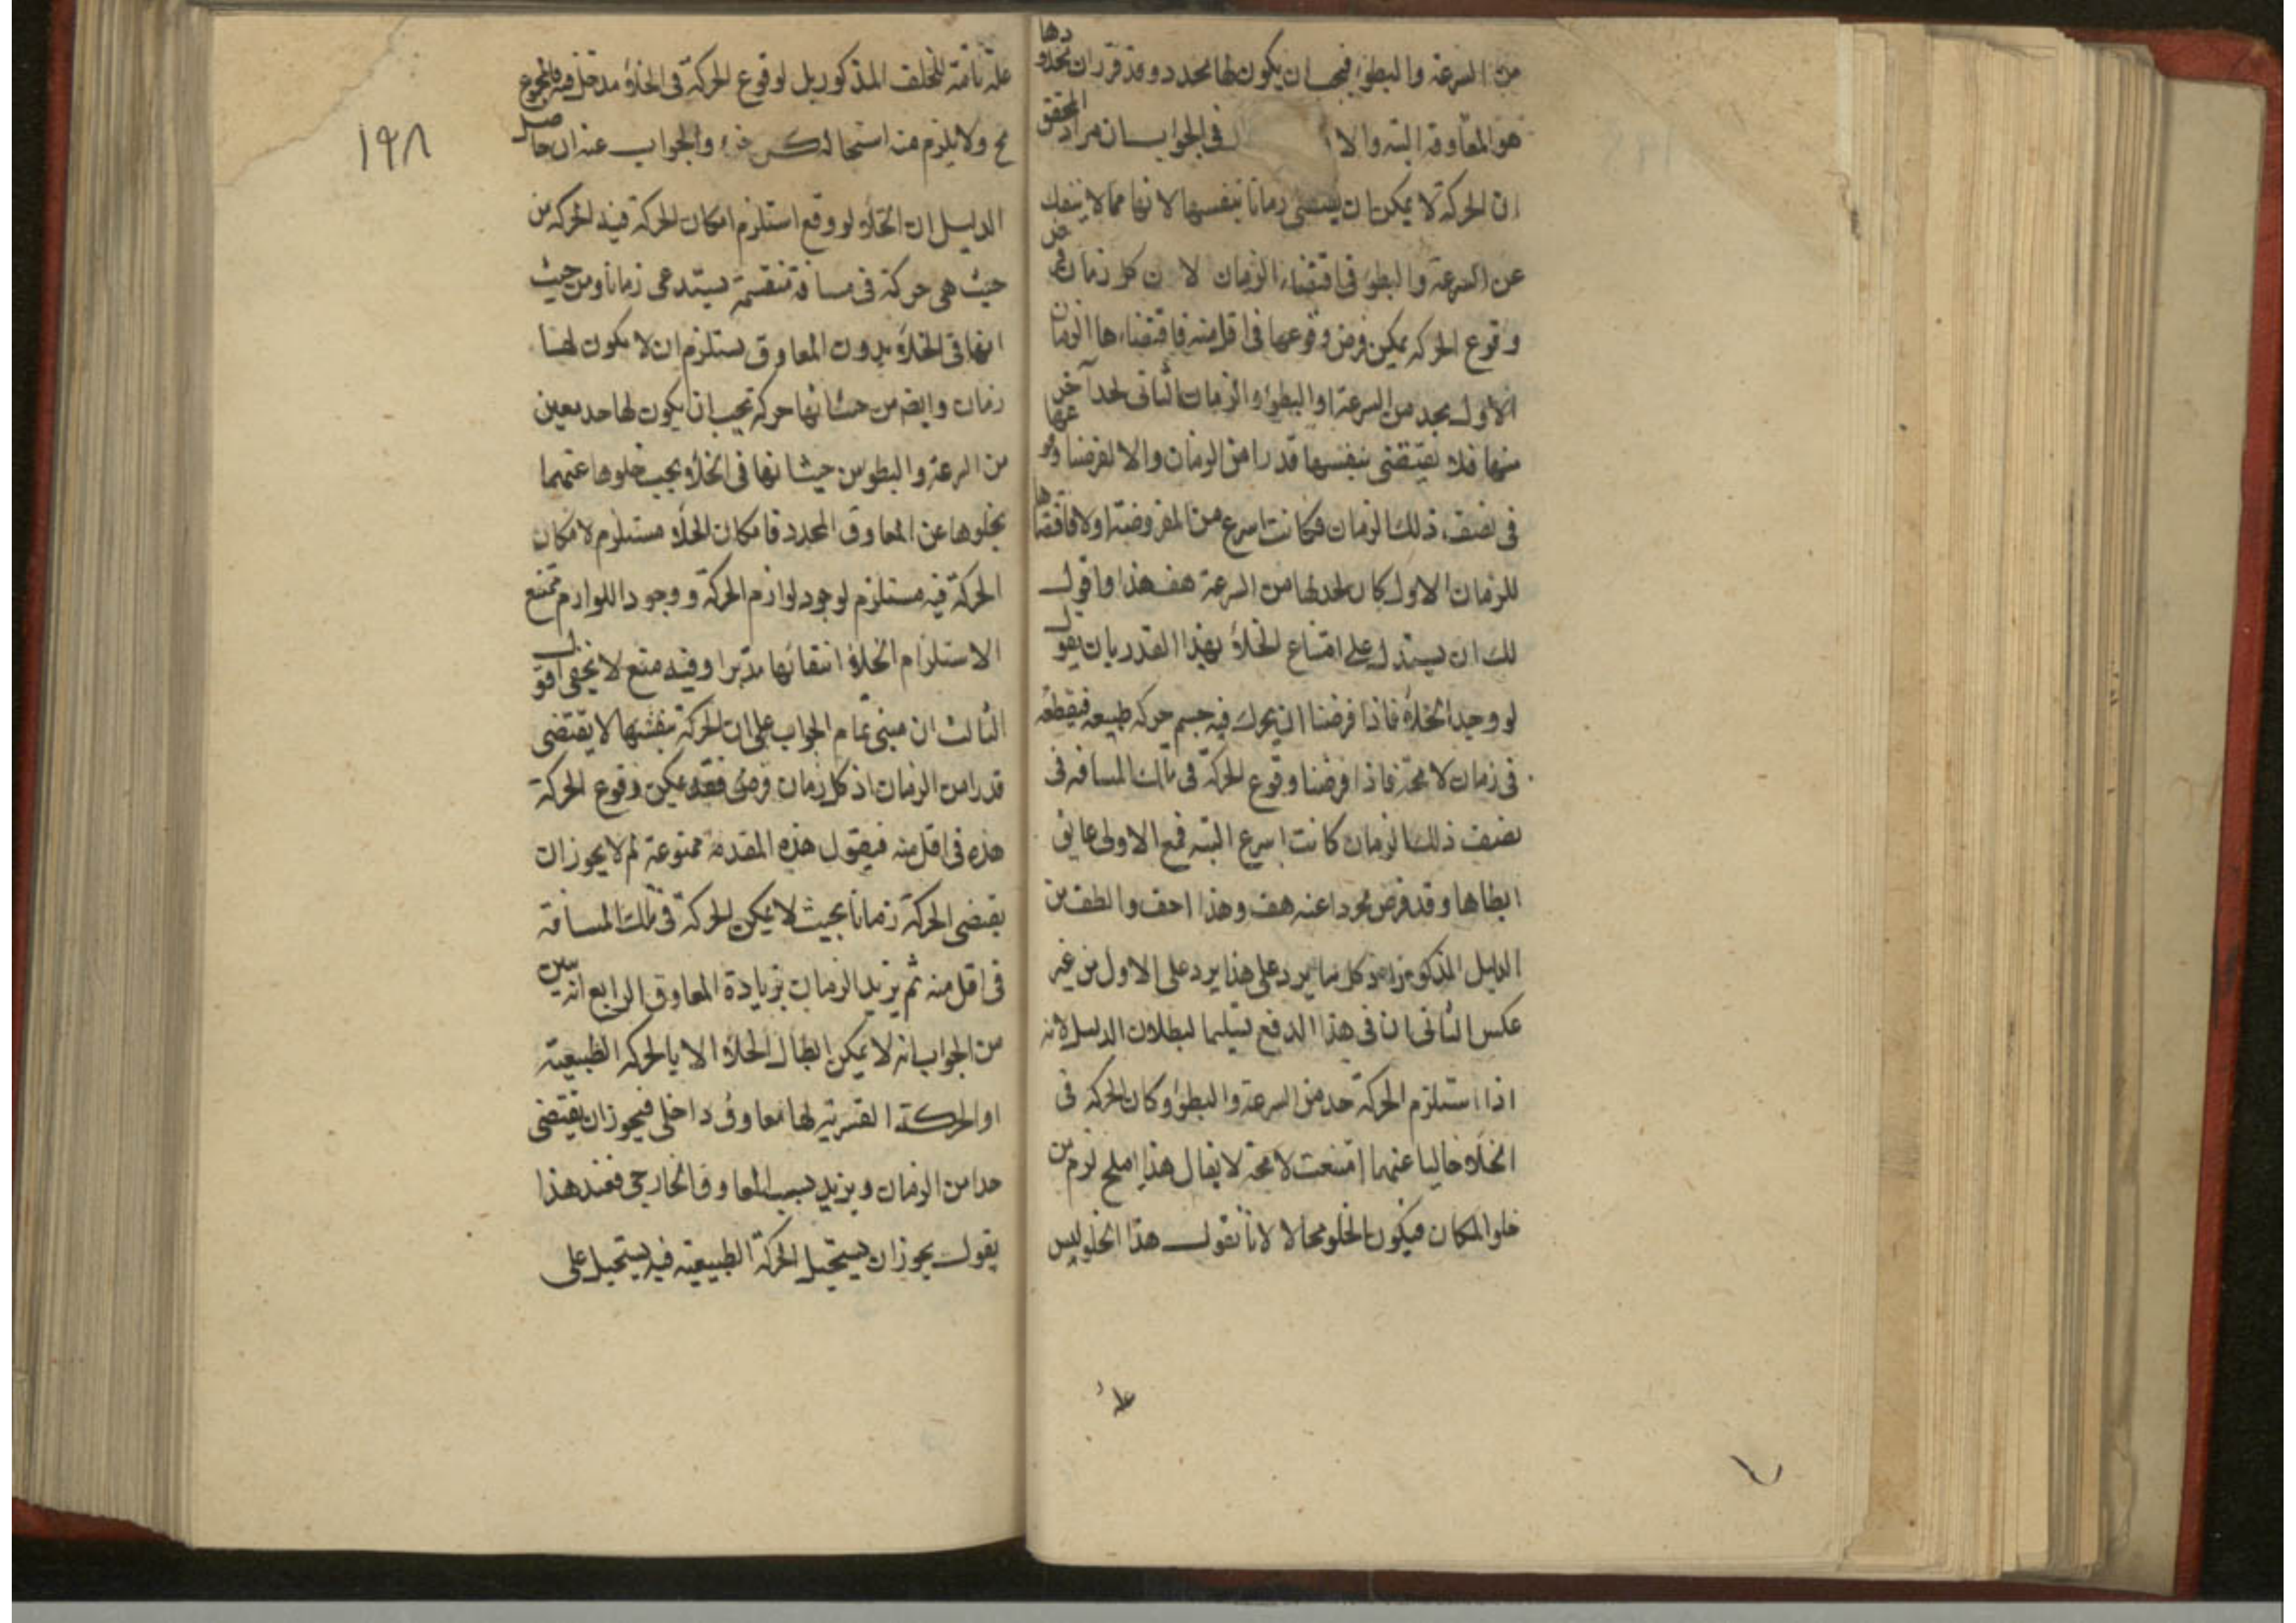 من السرعة والبطؤ فيجب ان يكون لها محدد وقد قرر ان محددها
هو المعاوقة البتة والا في الجواب ان مراد المحقق
ان الحركة لا يمكن ان يقتضى زمانا بنفسها لانها مما لا ينفك
عن السرعة والبطؤ فى اقتضاء الزمان لان كل زمان فرض
وقوع الحركة يمكن فرض وقوعها فى اقل منه فاقتضاءها الزمان
الاول بحد من السرعة او البطؤ والزمان الثانى لحد آخر
منها فلا تقتضى بنفسها قدرا من الزمان والا لفرضنا وقوعها
فى نصف ذلك الزمان فكانت اسرع من المفروضة اولا فاقتضاها
للزمان الاول كان لحد لها من السرعة هف هذا واقول
لك ان يستدل على امتناع الخلأ بهذا القدر بان يقول
لو وجد الخلأ فاذا فرضنا ان يحرك فيه جسم حركه طبيعه فيقطعه
فى زمان لا محة فاذا فرضنا وقوع الحركة فى تلك المسافه فى
نصف ذلك الزمان كانت اسرع البتة فمع الاولى عايق
ابطاها وقد فرض مجردا عنه هف وهذا اخف والطف من
الدليل المذكور وكل ما يرد على هذا يرد على الاول من غير
عكس الثانى ان فى هذا الدفع تسليما لبطلان الدليل لانه
اذا استلزم الحركة حد من السرعة والبطؤ وكان الحركة فى
الخلأ خاليا عنهما امتنعت لا محة لا يقال هذا لزم من
خلو المكان فيكون الخلو محالا لانا نقول هذا الخلو ليس
علة
علة تامة للخلف المذكور بل لوقوع الحركة فى الخلأ مدخل فيه فالمجموع
مح ولا يلزم منه استحالة كل جزء والجواب عنه ان حاصل
الدليل ان الخلأ لو وقع استلزم امكان الحركة فيه الحركة من
حيث هى حركة فى مسافة منقسمة يستدعى زمانا ومن حيث
انها فى الخلأ بدون المعاوق يستلزم ان لا يكون لها
زمان وايضا من حيث انها حركة يجب ان يكون لها حد معين
من السرعة والبطؤ من حيث انها فى الخلأ يجب خلوها عنهما
بخلوها عن المعاوق المحدد فامكان الخلأ مستلزم لامكان
الحركة فيه مستلزم لوجود لوازم الحركة ووجود اللوازم ممتنع
الاستلزام الخلأ انتفائها تدبر وفيه منع لا يخفى اقول
الثالث ان مبنى تمام الجواب على ان الحركة بنفسها لا يقتضى
قدرا من الزمان اذ كل زمان فرض فقد يمكن وقوع الحركة
هذه فى اقل منه فيقول هذه المقدمة ممنوعة لم لا يجوز ان
يقتضى الحركة زمانا بحيث لا يمكن الحركة فى تلك المسافة
فى اقل منه ثم يزيد الزمان بزيادة المعاوق الرابع انه تبين
من الجواب انه لا يمكن ابطال الخلأ الا بالحركه الطبيعية
او الحركة القسرية لها معاوق داخلى فيجوز ان يقتضى
حدا من الزمان ويزيد بسبب المعاوق الخارجى فعند هذا
يقول يجوز ان يستحيل الحركة الطبيعية فيه يستحيل على
١٩٨